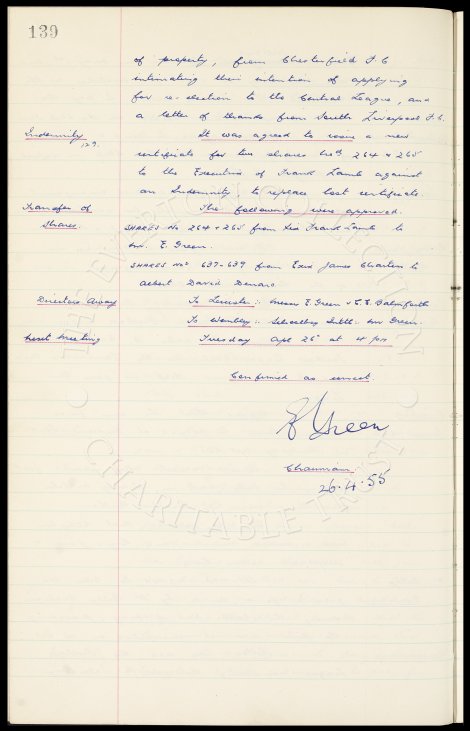 139
of property, from Chesterfield F.C
intimating their intention of applying
for re-election to the Central League, and
a letter of thanks from South Liverpool F.C.
Indemnity
127.
It was agreed to issue a new
certificate for two shares Nos 264 & 265
to the Executors of Frank Lamb against
an Indemnity to replace lost certificate.
Transfer of
Shares.
The following were approved.
SHARES No 264 & 265 from Exs Frank Lamb to
Mr. E. Green.
SHARES Nos 637-639 from Exs James Charters to
Albert David
Directors Away
To Leicester :: Messrs E. Green & C.E. Balmforth
To Wembley :: Schoolboys Intl :: Mr Green.
Next Meeting
Tuesday Apl 26 at 4 pm
Confirmed as correct
E Green
Chairman
26.4.55
THE EVERTON COLLECTION
CHARITABLE TRUST